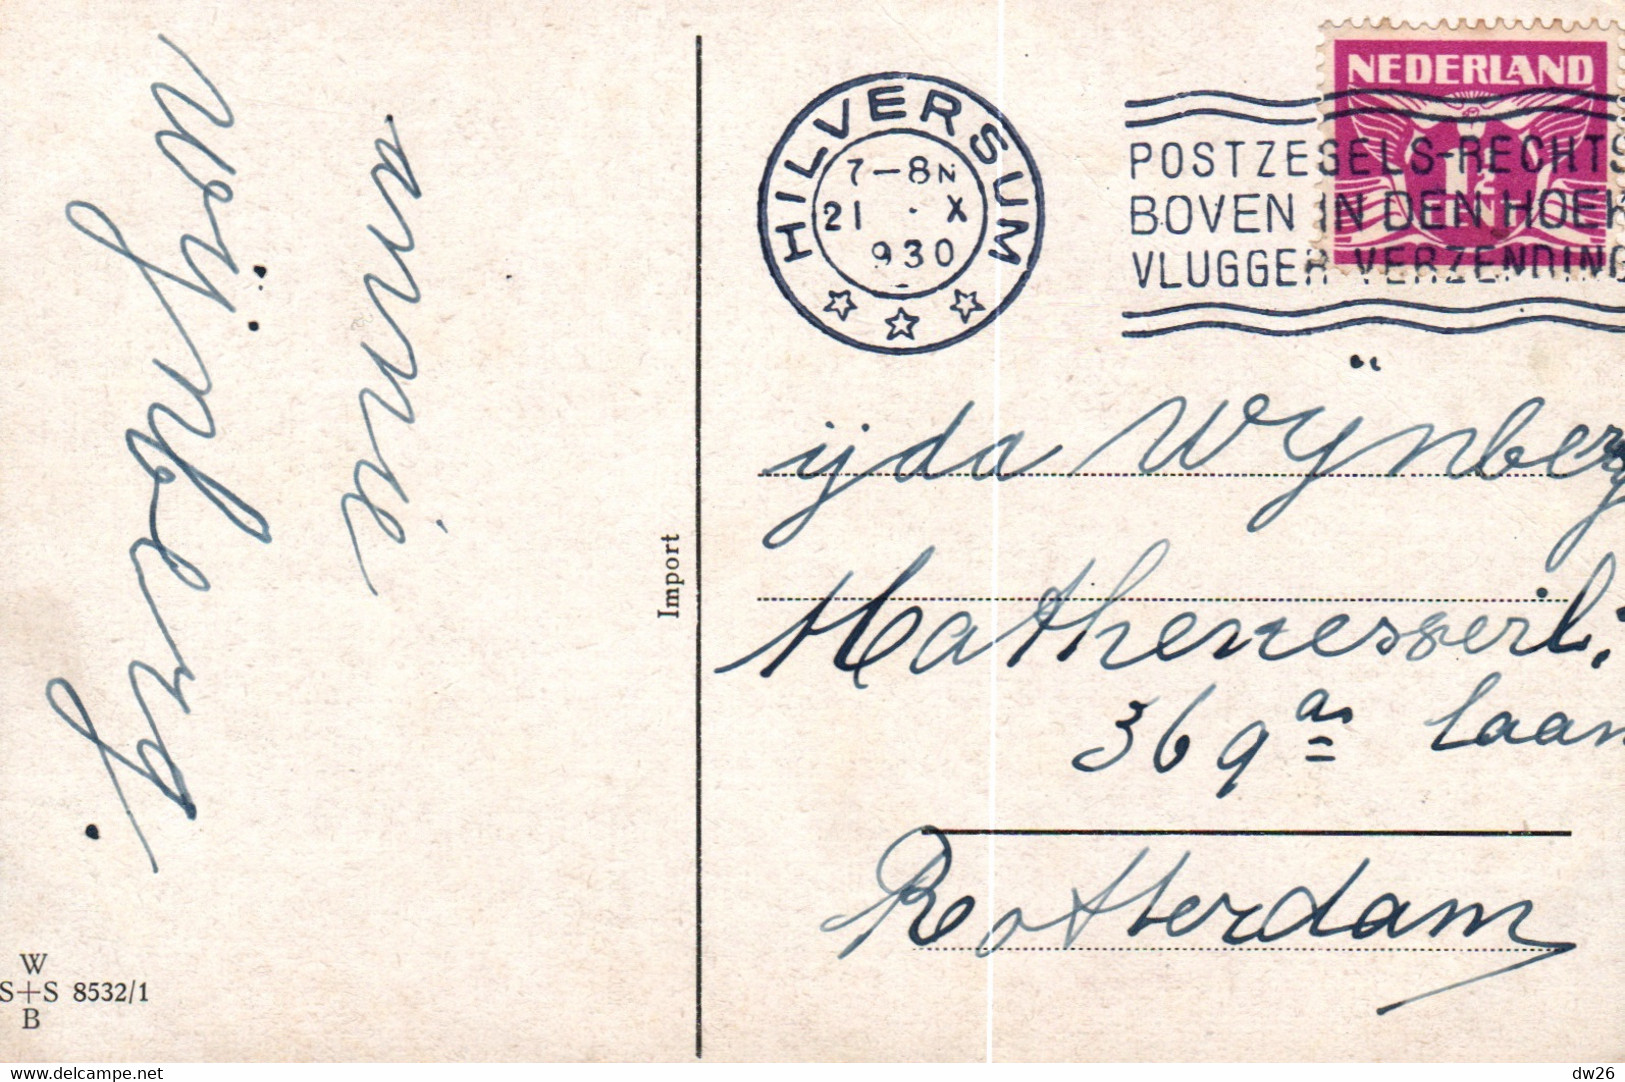 annie
Wijnberg.
Import
W
S+S 8532/1
B
HILVERSUM
7-8N
21 . X
930
NEDERLAND
1½
CENT
POSTZEGELS-RECHTS
BOVEN IN DEN HOEK
VLUGGER VERZENDING
ijda Wijnberg
Mathenesserl.
369 as laan
Rotterdam
delcampe.net
dw26